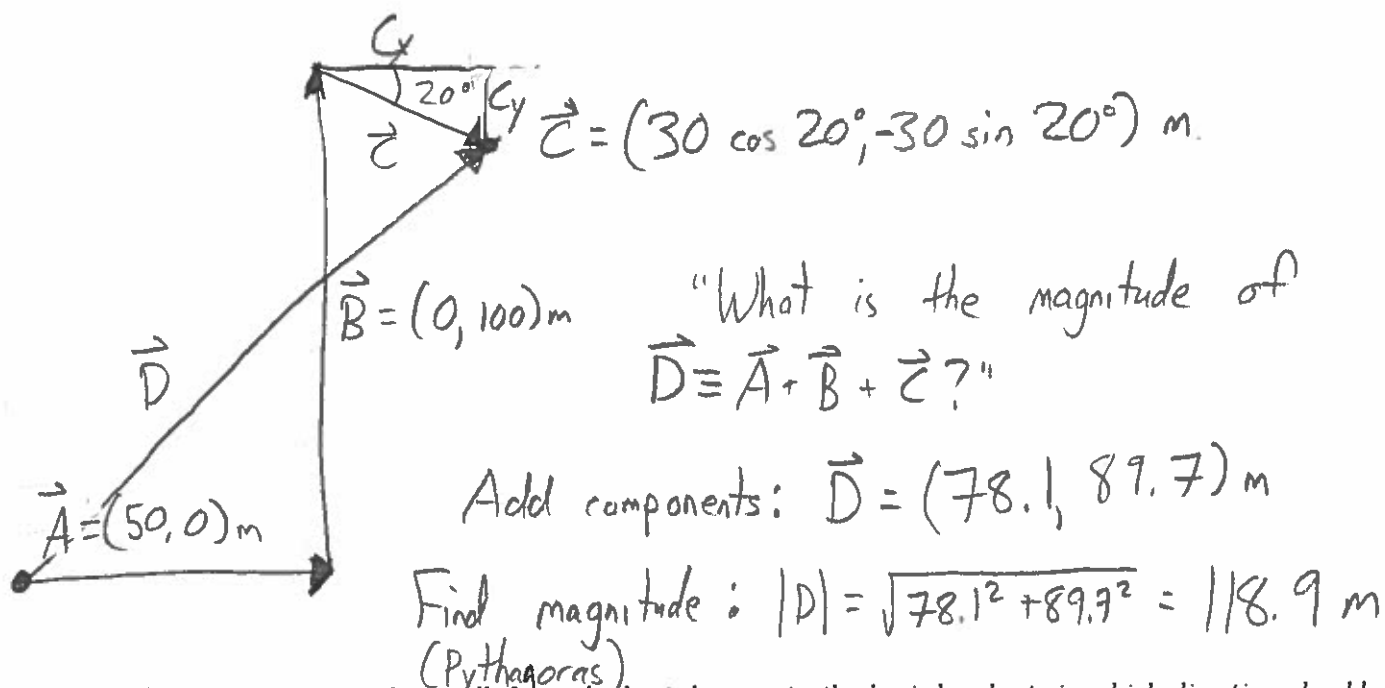 Cx
20°
Cy
C⃗ = (30 cos 20°, -30 sin 20°) m.
C⃗
B⃗ = (0, 100) m
"What is the magnitude of
D⃗ ≡ A⃗ + B⃗ + C⃗ ?"
D⃗
Add components: D⃗ = (78.1, 89.7) m
A⃗ = (50, 0) m
Find magnitude : |D| = √78.1² + 89.7² = 118.9 m
(Pythagoras)